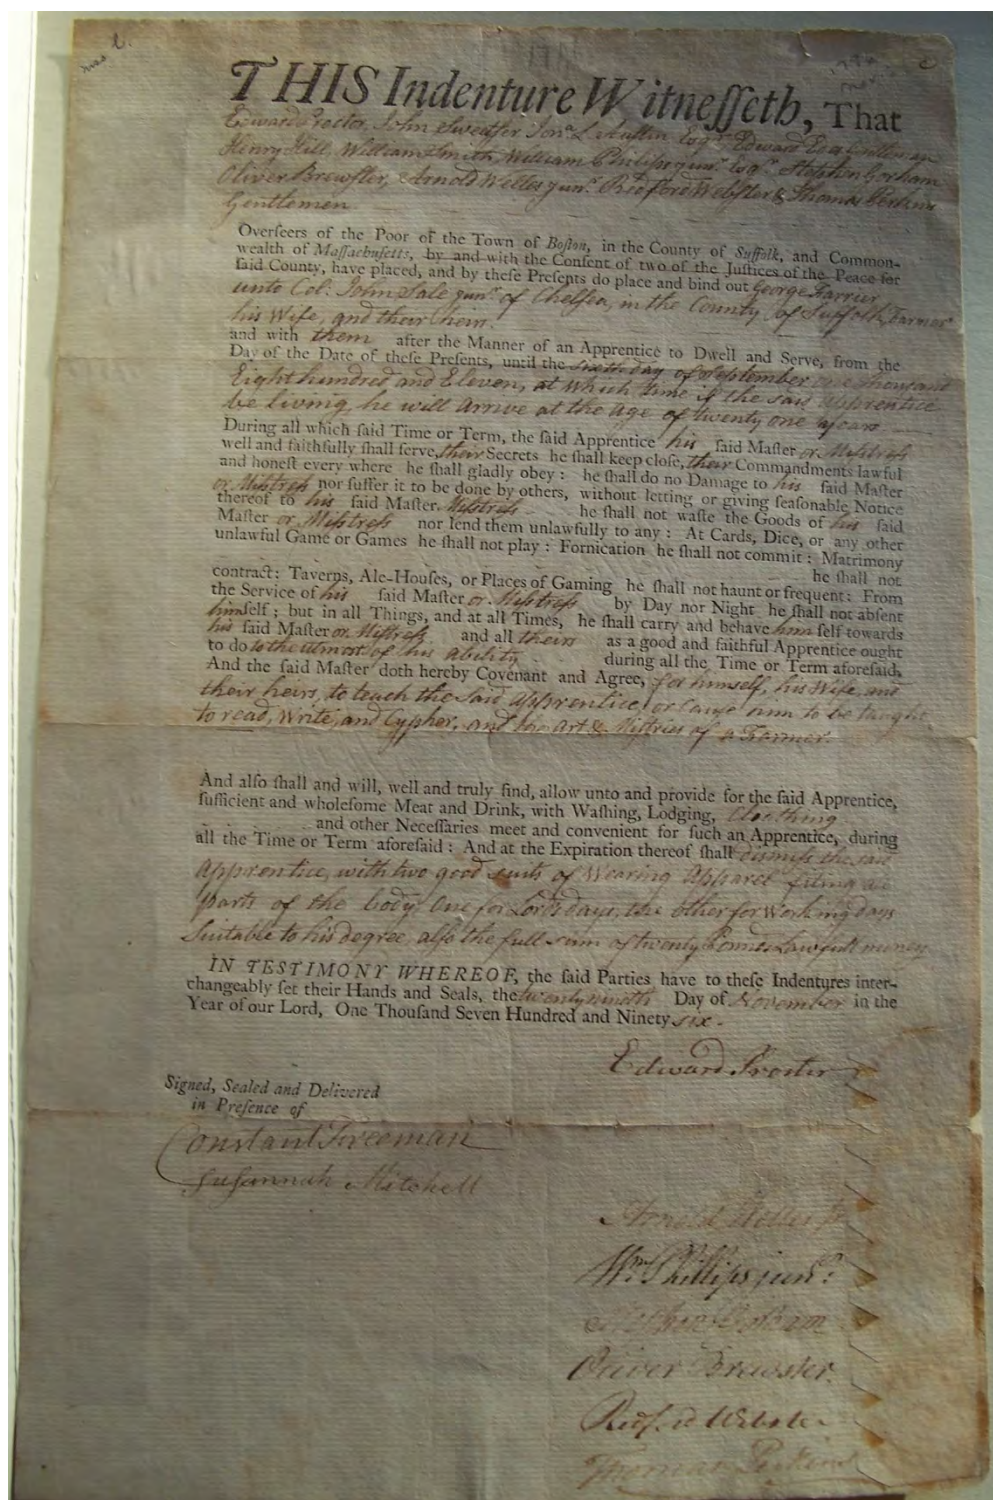 THIS Indenture Witnesseth, That
Edward Proctor, John Sweetser Jonª. L. Austin Esqrs. Edward Edes Gentleman
Henry Hill, William Smith, William Phillips junr. Esqrs. Stephen Gorham
Oliver Brewster, Arnold Welles junr. Redford Webster & Thomas Perkins
Gentlemen
Overſeers of the Poor of the Town of Boſton, in the County of Suffolk, and Common-
wealth of Maſſachuſetts, by and with the Conſent of two of the Juſtices of the Peace for
ſaid County, have placed, and by theſe Preſents do place and bind out George Farrier
unto Col: John Sale junr. of Chelsea, in the County of Suffolk, Farmer
his Wife, and their heirs.
and with them after the Manner of an Apprentice to Dwell and Serve, from the
Day of the Date of theſe Preſents, until the sixth day of September one thousand
Eight hundred and Eleven, at which time if the said apprentice
be living he will arrive at the age of twenty one years.
During all which ſaid Time or Term, the ſaid Apprentice his ſaid Maſter or Miſtreſs
well and faithfully ſhall ſerve, their Secrets he ſhall keep cloſe, their Commandments lawful
and honeſt every where he ſhall gladly obey: he ſhall do no Damage to his ſaid Maſter
or Miſtreſs nor ſuffer it to be done by others, without letting or giving ſeaſonable Notice
thereof to his ſaid Maſter Miſtreſs he ſhall not waſte the Goods of his ſaid
Maſter or Miſtreſs nor lend them unlawfully to any: At Cards, Dice, or any other
unlawful Game or Games he ſhall not play: Fornication he ſhall not commit: Matrimony
he ſhall not
contract: Taverns, Ale-Houſes, or Places of Gaming he ſhall not haunt or frequent: From
the Service of his ſaid Maſter or Miſtreſs by Day nor Night he ſhall not abſent
himſelf; but in all Things, and at all Times, he ſhall carry and behave him ſelf towards
his ſaid Maſter or Miſtreſs and all theirs as a good and faithful Apprentice ought
to do to the utmost of his ability during all the Time or Term aforeſaid.
And the ſaid Maſter doth hereby Covenant and Agree, for himself, his Wife, and
their heirs, to teach the said apprentice, or cause him to be taught
to read, Write, and Cypher, and the art & Miſtries of a Farmer.
And alſo ſhall and will, well and truly find, allow unto and provide for the ſaid Apprentice,
ſufficient and wholeſome Meat and Drink, with Waſhing, Lodging, Cloathing
and other Neceſſaries meet and convenient for ſuch an Apprentice, during
all the Time or Term aforeſaid: And at the Expiration thereof ſhall dismiſs the said
Apprentice, with two good suits of Wearing Apparel fiting all
parts of the body, One for Lords days, the other for Working days
Suitable to his degree, alſo the full sum of twenty Lawfull money
IN TESTIMONY WHEREOF, the ſaid Parties have to theſe Indentures inter-
changeably ſet their Hands and Seals, the twenty ninth Day of November in the
Year of our Lord, One Thouſand Seven Hundred and Ninety six.
Edward Procter
Signed, Sealed and Delivered
in Preſence of
Constant Freeman
Suſannah Mitchell
Arnold Welles jr
Wm. Phillips junr:
Stephen Gorham
Oliver Brewster.
Redfd Webster
Thomas Perkins